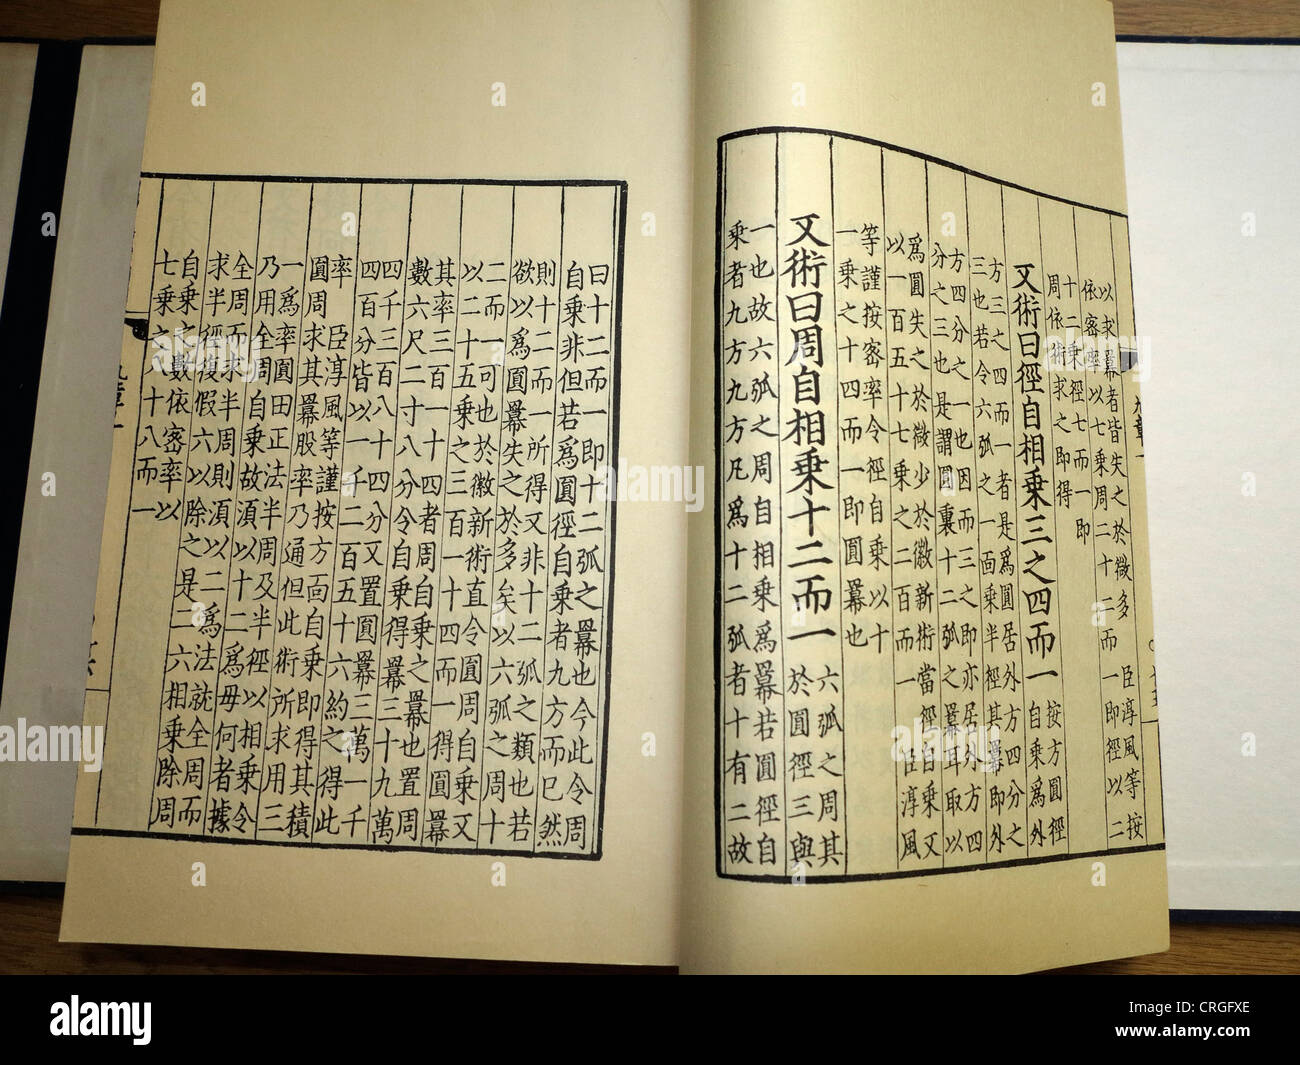 以求冪者皆失之於微多　臣淳風等按
依密率以七乘周二十二而一即徑以二
十二乘徑七而一即
周依術求之即得
又術曰徑自相乘三之四而一
按方圓徑
自乘爲外
方三之四而一者是爲圓居外方四分之
三也若令六弧之一面乘半徑其冪即外
方四分之一也因而三之即亦居外方四
分之三也是謂圓裏十二弧之冪耳取以
爲圓失之於微少於徽新術當徑自乘又
以一百五十七乘之二百而一　臣淳風
等謹按密率令徑自乘以十
一乘之十四而一即圓冪也
又術曰周自相乘十二而一
六弧之周其
於圓徑三與
一也故六弧之周自相乘爲冪若圓徑自
乘者九方九方凡爲十二弧者十有二故
曰十二而一即十二弧之冪也今此令周
自乘非但若爲圓徑自乘者九方而已然
則十二而一所得又非十二弧之類也若
欲以爲圓冪失之於多矣以六弧之周十
二而一可也於徽新術直令圓周自乘又
以二十五乘之三百一十四而一得圓冪
其率三百一十四者周自乘之冪也置周
數六尺二寸八分令自乘得冪三十九萬
四千三百八十四分又置圓冪三萬一千
四百分皆以一千二百五十六約之得此
率　臣淳風等謹按方面自乘即得其積
圓周求其冪股率乃通但此術所求用三
一爲率圓田正法半周及半徑以相乘令
乃用全周自乘故須以十二爲母何者據
全周而求半周則須以二爲法就全周而
求半徑復假六以除之是二六相乘除周
自乘之數依密率以
七乘之八十八而一
alamy
Image ID: CRGFXE
www.alamy.com